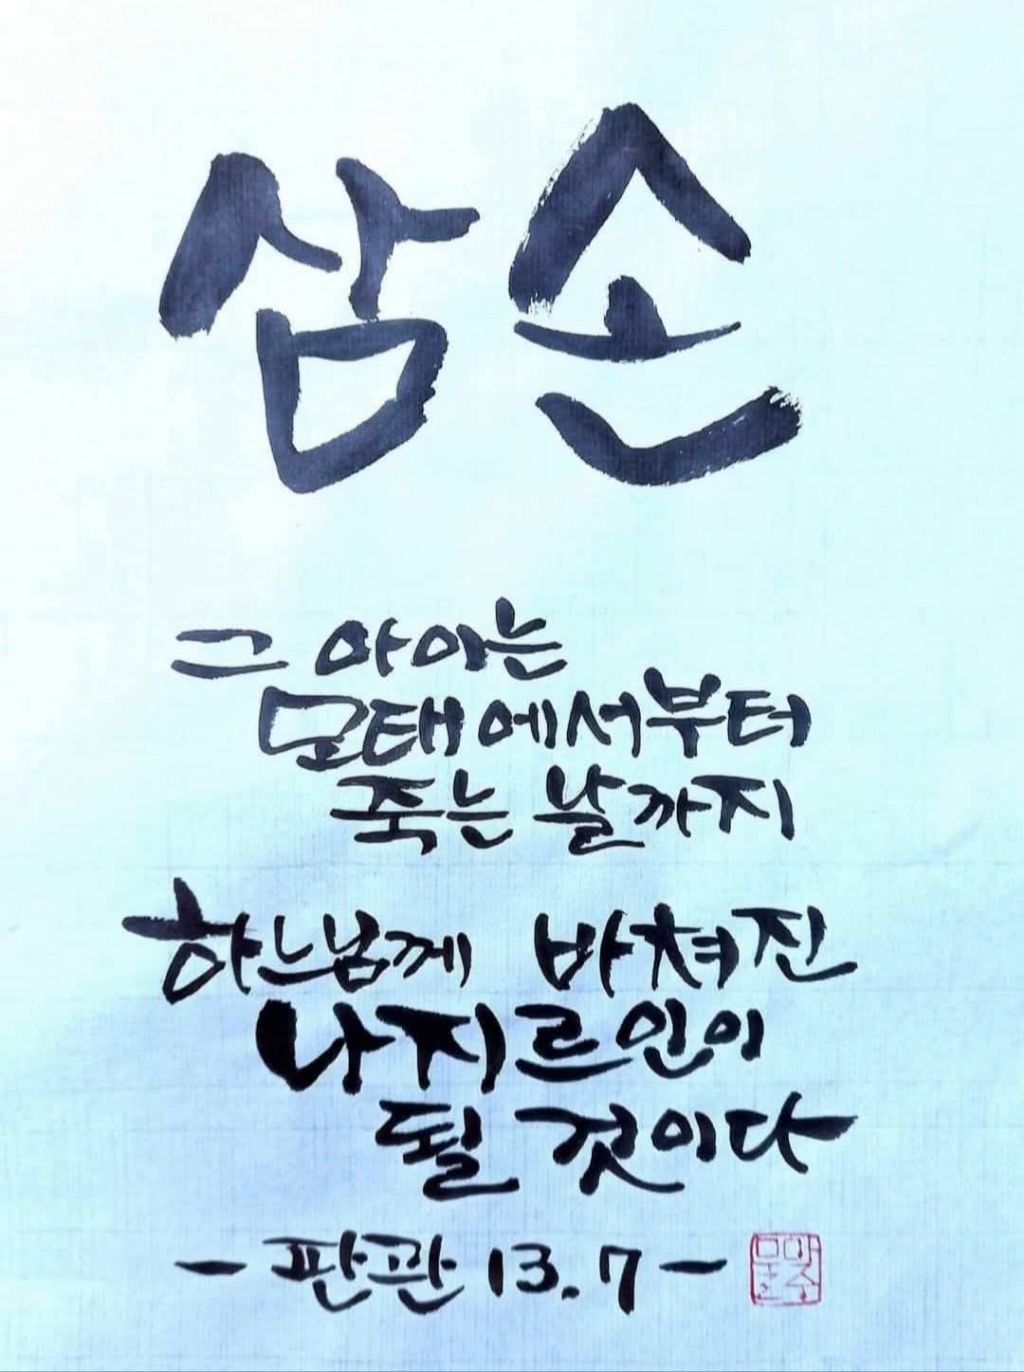 삼손
그 아이는
모태에서부터
죽는 날까지
하느님께 바쳐진
나지르인이
될 것이다
- 판관 13.7 -